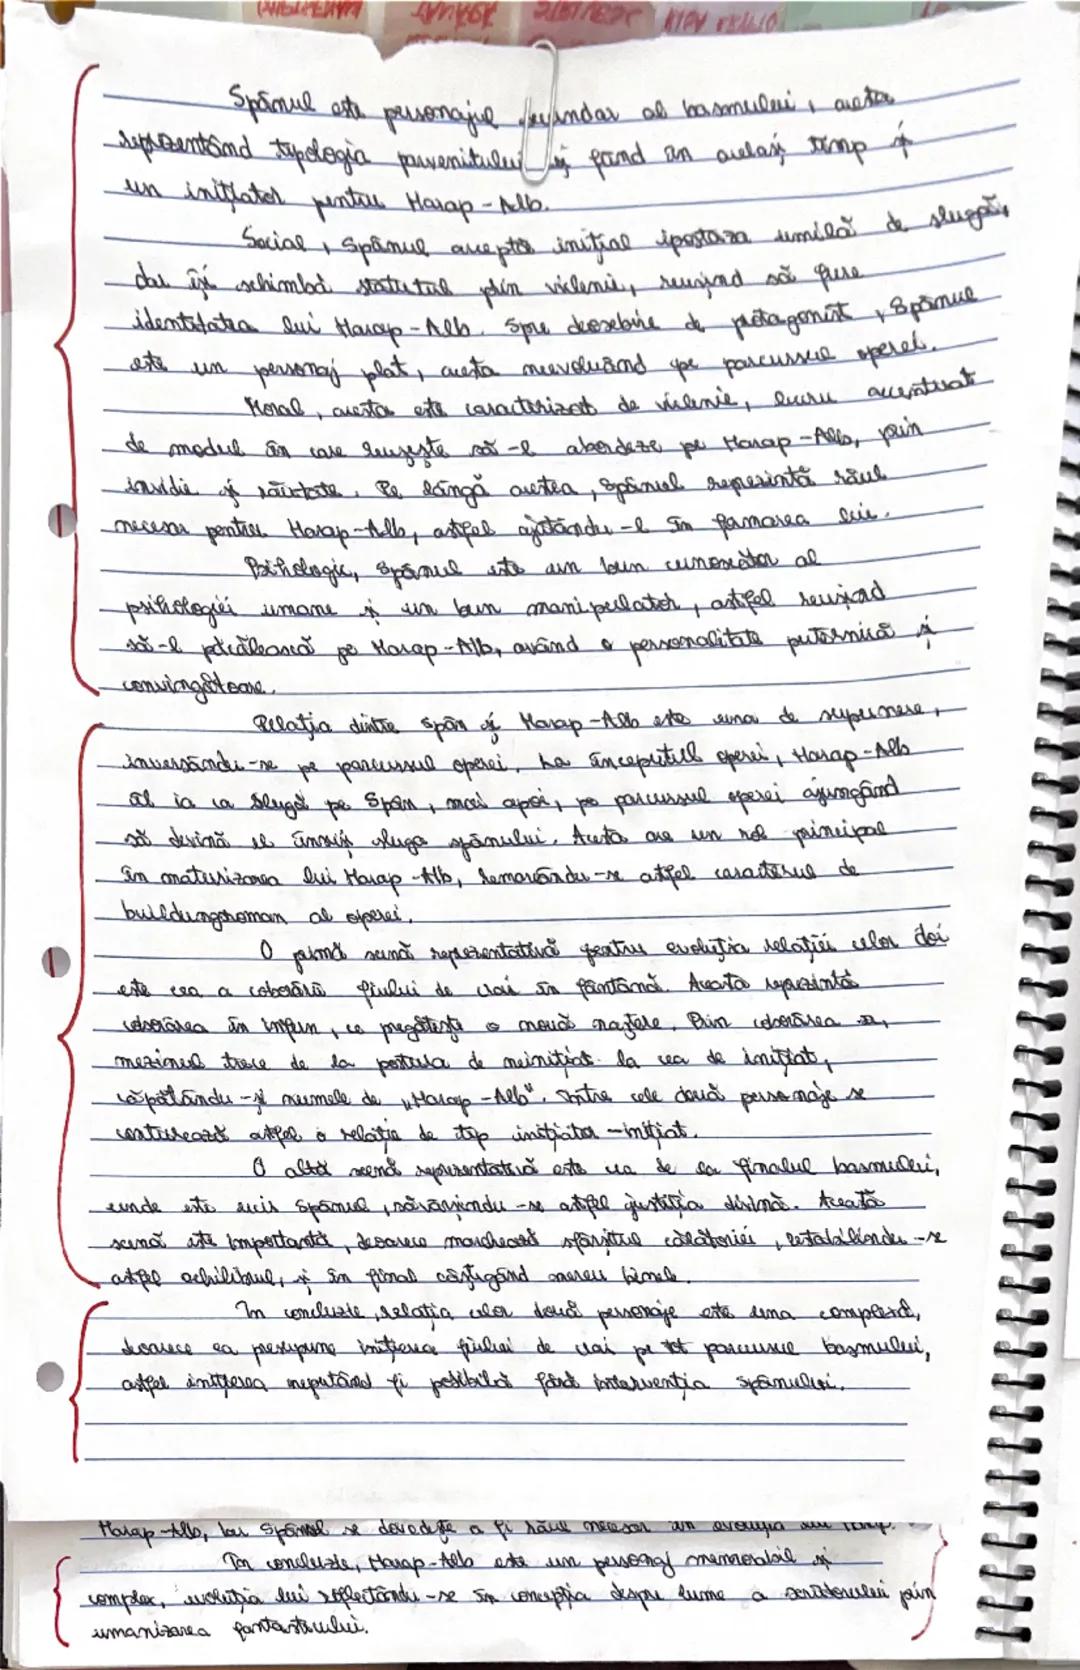 Spânul este personajul secundar al basmului, acesta
reprezentând tipologia parvenitului și fiind în același timp și
un inițiator pentru Harap-Alb.
Social, Spânul acceptă inițial ipostaza umilă de slugă,
dar își schimbă statutul prin viclenie, reușind să fure
identitatea lui Harap-Alb. Spre deosebire de protagonist, Spânul
este un personaj plat, acesta neevoluând pe parcursul operei.
Moral, acesta este caracterizat de viclenie, lucru accentuat
de modul în care reușește să-l abordeze pe Harap-Alb, prin
invidie și răutate. Pe lângă acestea, Spânul reprezintă răul
necesar pentru Harap-Alb, astfel ajutându-l în formarea lui.
Psihologic, Spânul este un bun cunoscător al
psihologiei umane și un bun manipulator, astfel reușind
să-l păcălească pe Harap-Alb, având o personalitate puternică și
convingătoare.
Relația dintre Spân și Harap-Alb este una de supunere,
inversându-se pe parcursul operei. La începutul operei, Harap-Alb
îl ia ca slugă pe Spân, mai apoi, pe parcursul operei ajungând
să devină el însuși sluga spânului. Acesta are un rol principal
în maturizarea lui Harap-Alb, remarcându-se astfel caracterul de
buildungsroman al operei.
O primă scenă reprezentativă pentru evoluția relației celor doi
este cea a coborârii fiului de crai în fântână. Aceasta reprezintă
coborârea în infern, ce pregătește o nouă naștere. Prin coborârea sa,
mezinul trece de la postura de neinițiat la cea de inițiat,
căpătându-și numele de „Harap-Alb". Între cele două personaje se
conturează astfel o relație de tip inițiator-inițiat.
O altă scenă reprezentativă este cea de la finalul basmului,
unde este ucis Spânul, săvârșindu-se astfel justiția divină. Această
scenă este importantă, deoarece marchează sfârșitul călătoriei, restabilindu-se
astfel echilibrul, și în final câștigând mereu binele.
În concluzie, relația celor două personaje este una complexă,
deoarece ea presupune inițierea fiului de crai pe tot parcursul basmului,
astfel inițierea neputând fi posibilă fără intervenția spânului.
Harap-Alb, iar Spânul se dovedește a fi răul necesar în evoluția lui
În concluzie, Harap-Alb este un personaj memorabil și
complex, evoluția lui reflectându-se în concepția despre lume a scriitorului prin
umanizarea fantasticului.